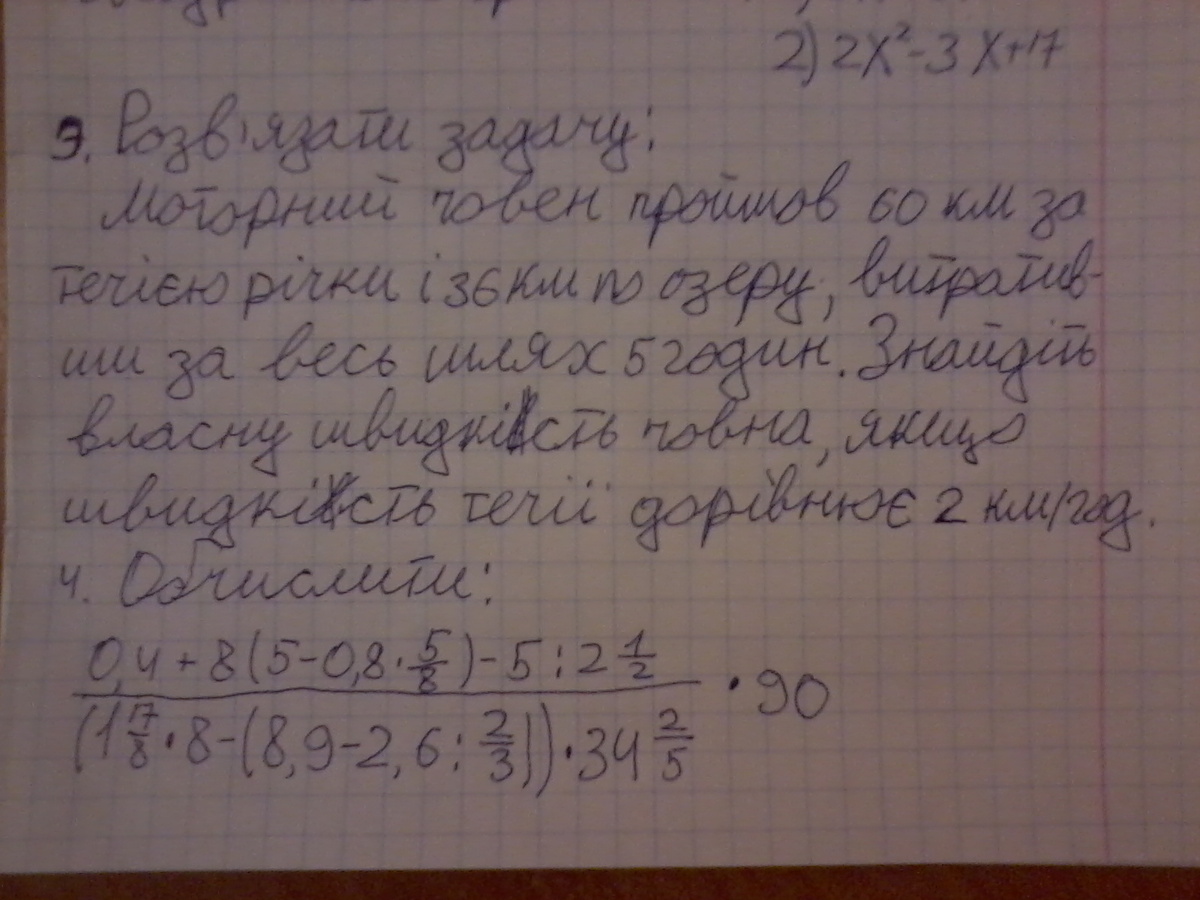 2) 2x²-3x+17
3. Розв'язати задачу:
Моторний човен пройшов 60 км за
течією річки і 36 км по озеру, витратив-
ши за весь шлях 5 годин. Знайдіть
власну швидкість човна, якщо
швидкість течії дорівнює 2 км/год.
4. Обчислити:
0,4+8(5-0,8·5/8)-5:2 1/2
(1 17/8·8-(8,9-2,6:2/3))·34 2/5 ·90